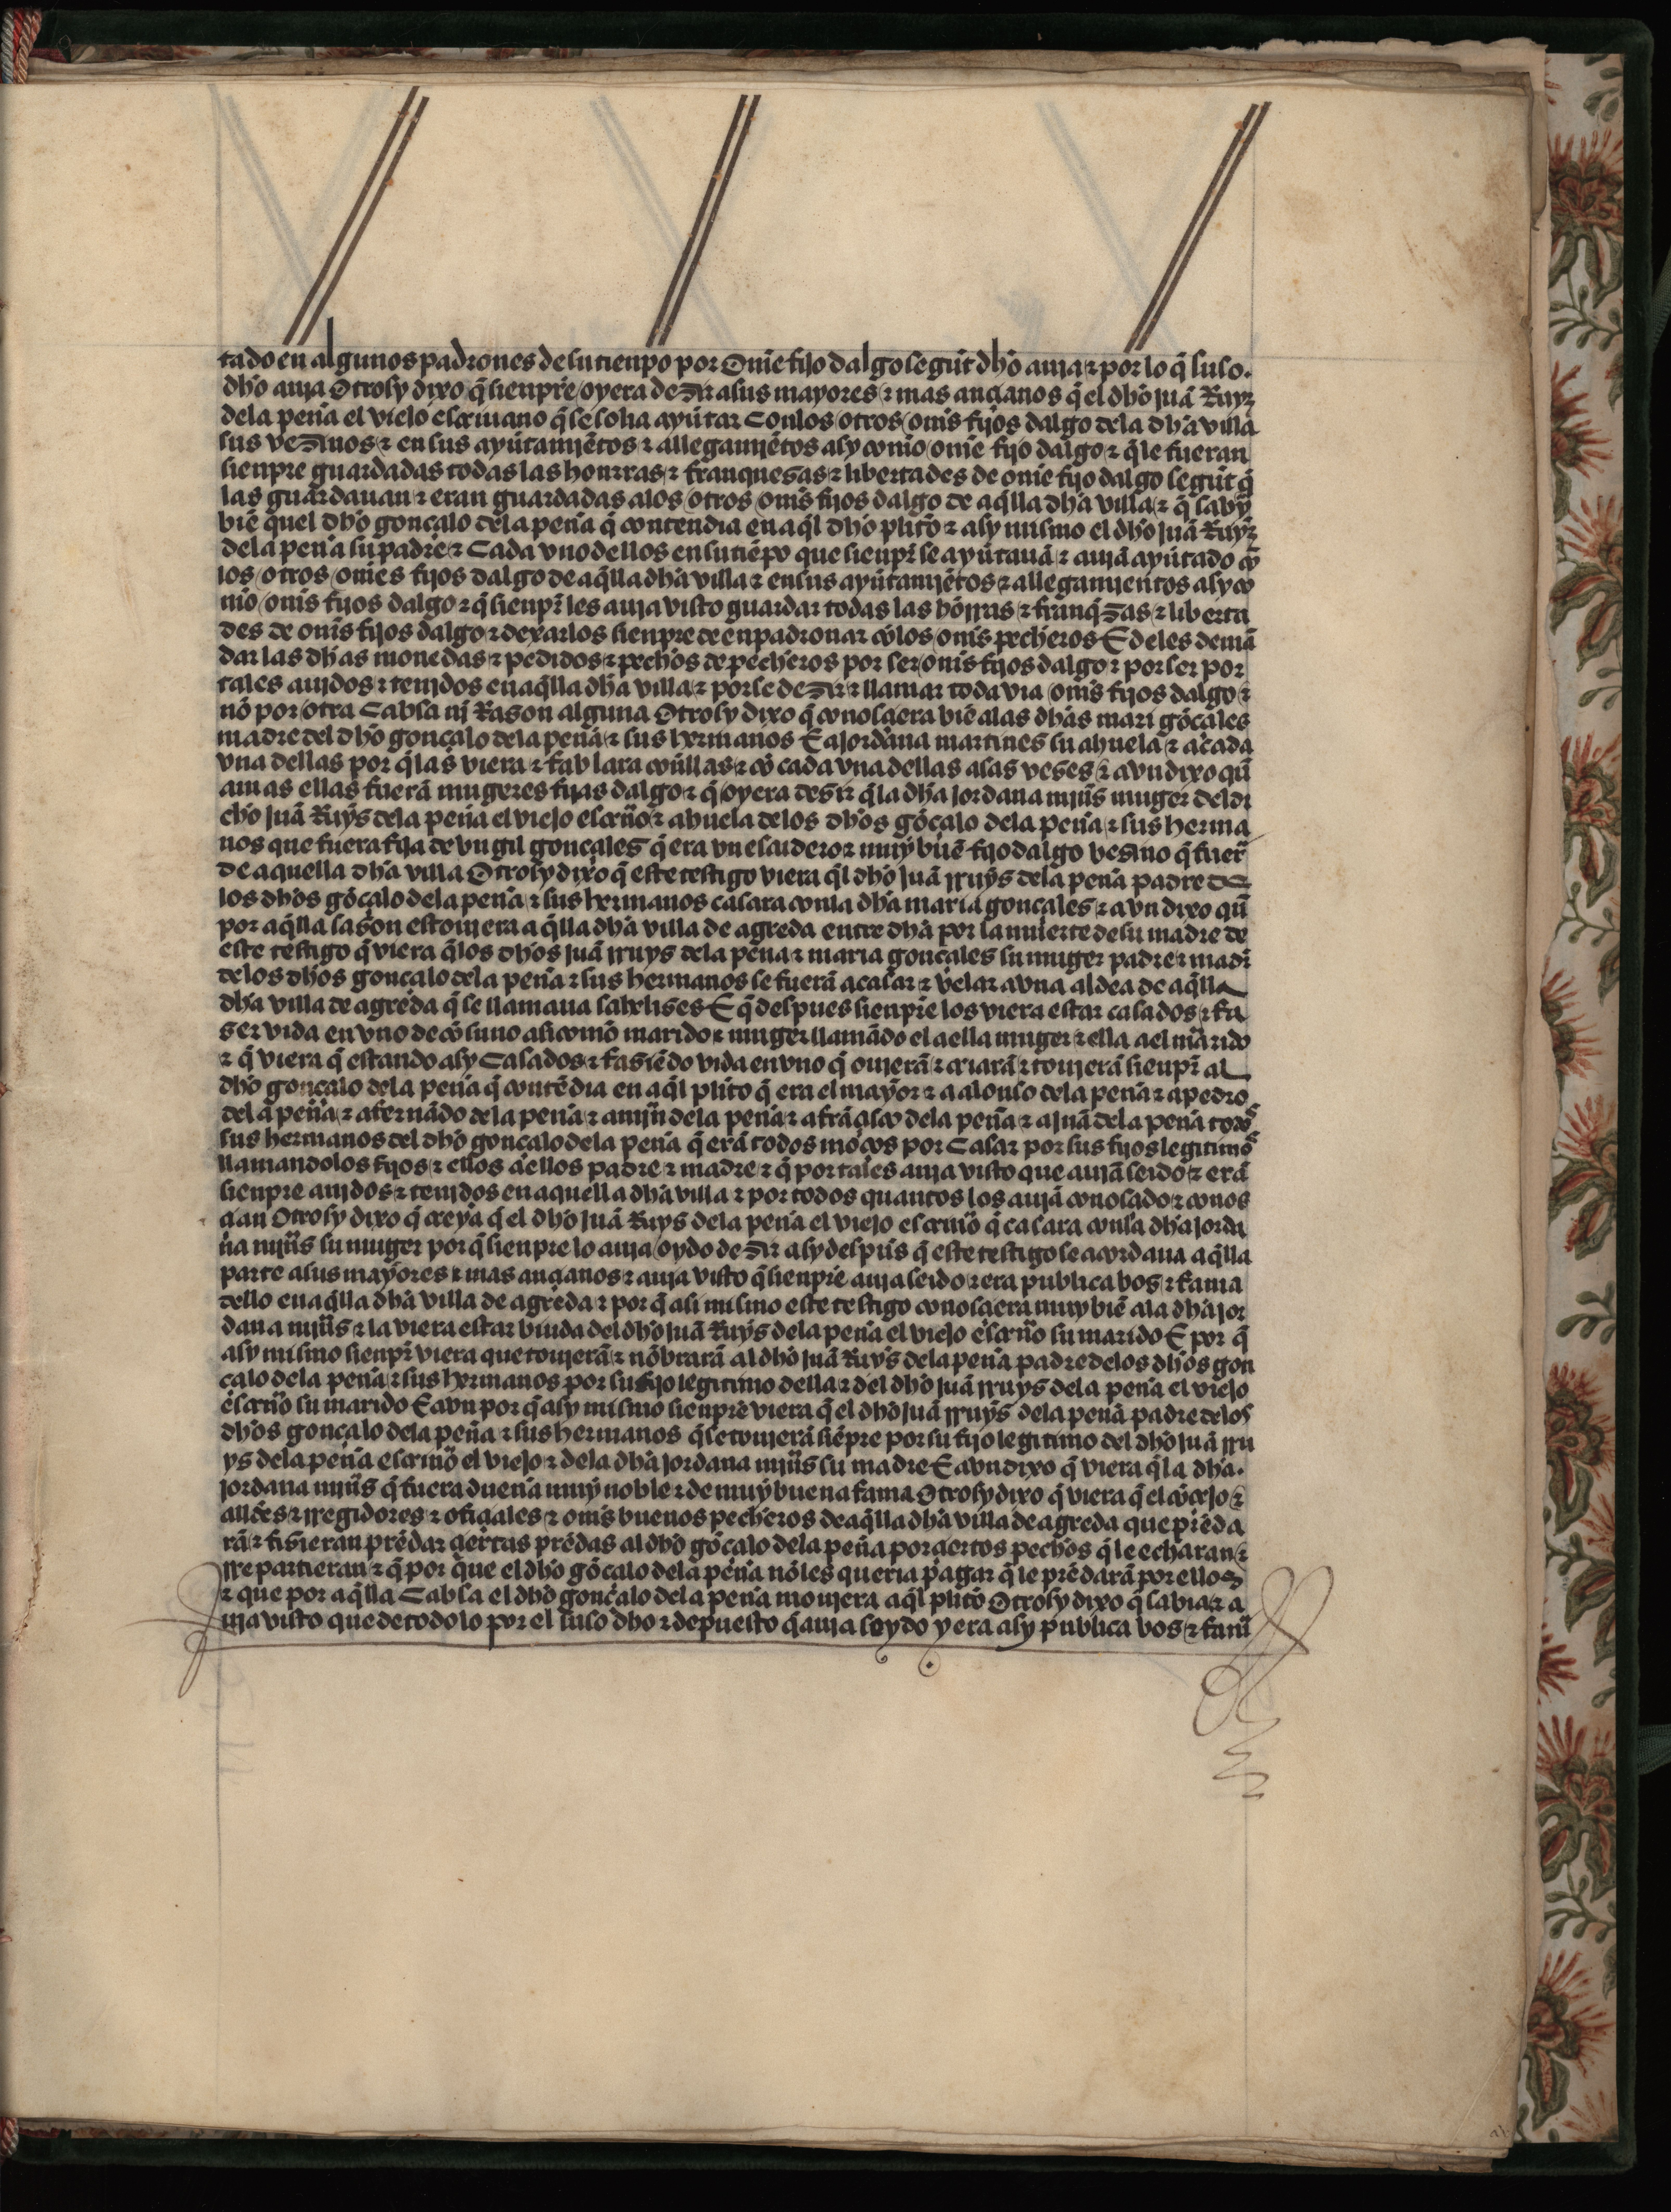 tado en algunos padrones de su tienpo por Om̃e fijo dalgo segũt dh̃o auja ⁊ por lo q̃ suso.
dh̃o auja Otrosy dixo q̃ sienpre oyera dezir a sus mayores ⁊ mas ançianos q̃ el dh̃o juã Ruyz
dela peña el viejo escriuano q̃ se solia ayũtar Con los otros om̃s fijos dalgo dela dh̃a villa
sus vezinos ⁊ en sus ayũtamjẽtos ⁊ allegamjẽtos asy com̃o om̃e fijo dalgo ⁊ q̃ le fueran
sienpre guardadas todas las honrras ⁊ franquesas ⁊ libertades de om̃e fijo dalgo segũt q̃
las guardauan ⁊ eran guardadas alos otros om̃s fijos dalgo de aq̃lla dh̃a villa ⁊ q̃ saby̑
biẽ quel dh̃o gonçalo dela peña q̃ contendia en aq̃l dh̃o plito ⁊ asy mismo el dh̃o juã Ruyz
dela peña su padre ⁊ Cada vno dellos en su tiẽpo que sienpr̃ se ayũtauã ⁊ aujã ayũtado cõ
los otros om̃es fijos dalgo de aq̃lla dh̃a villa ⁊ en sus ayũtamjẽtos ⁊ allegamjentos asy co
m̃o om̃s fijos dalgo ⁊ q̃ sienpr̃ les auja visto guardar todas las hõrras ⁊ franq̃zas ⁊ liberta
des de om̃s fijos dalgo ⁊ dexarlos sienpre de enpadronar cõ los om̃s pecheros E deles demã
dar las dh̃as monedas ⁊ pedidos ⁊ pechos de pecheros por ser om̃s fijos dalgo ⁊ por ser por
tales aujdos ⁊ tenjdos en aq̃lla dh̃a villa ⁊ por se dezir ⁊ llamar toda via om̃s fijos dalgo ⁊
nõ por otra Cabsa nj Rason alguna Otrosy dixo q̃ conosçiera biẽ alas dh̃as mari gõçales
madre del dh̃o gonçalo dela peña ⁊ sus hermanos E a jordana martines su abuela ⁊ a cada
vna dellas por q̃ las viera ⁊ fablara cõ ellas ⁊ cõ cada vna dellas asas veses ⁊ avn dixo qũ
amas ellas fuerã mugeres fijas dalgo ⁊ q̃ oyera desir q̃ la dh̃a jordana mjñs muger del di
cho juã Ruys dela peña el viejo escriuõ ⁊ abuela delos dh̃os gõçalo dela peña ⁊ sus herma
nos que fuera fija de vn gil gonçales q̃ era vn escudero ⁊ muy buẽ fijo dalgo vesino q̃ fuer̃
de aquella dh̃a villa Otrosy dixo q̃ este testigo viera q̃l dh̃o juã rruys dela peña padre de
los dh̃os gõçalo dela peña ⁊ sus hermanos casara con la dh̃a maria gonçales ⁊ avn dixo qũ
por aq̃lla sason estoujera aq̃lla dh̃a villa de agreda entre dh̃a por la muerte de su madre de
este testigo q̃ viera q̃ los dh̃os juã rruys dela peña ⁊ maria gonçales su muger padre ⁊ madr̃
delos dh̃os gonçalo dela peña ⁊ sus hermanos se fuerã a casar ⁊ velar a vna aldea de aq̃lla
dh̃a villa de agreda q̃ se llamaua E q̃ despues sienpre los viera estar casados ⁊ fa
ser vida en vno de cõsuno asi com̃o marido ⁊ muger llamãdo el a ella muger ⁊ ella a el marido
⁊ q̃ viera q̃ estando asy Casados ⁊ fasiẽdo vida en vno q̃ oujerã ⁊ criarã ⁊ toujerã sienpr̃ al
dh̃o gonçalo dela peña q̃ contẽdia en aq̃l plito q̃ era el mayor ⁊ a alonso dela peña ⁊ a pedro
dela peña ⁊ a fernãdo dela peña ⁊ a mjñ dela peña ⁊ a frãçisco dela peña ⁊ a juã dela peña todos
sus hermanos del dh̃o gonçalo dela peña q̃ erã todos moços por Casar por sus fijos legitimos
llamandolos fijos ⁊ ellos a ellos padre ⁊ madre ⁊ q̃ por tales auja visto que aujã seido ⁊ erã
sienpre aujdos ⁊ tenjdos en aquella dh̃a villa ⁊ por todos quantos los aujã conosçido ⁊ conos
çian Otrosy dixo q̃ creya q̃ el dh̃o juã Ruys dela peña el viejo escriuõ q̃ casara con la dh̃a jorda
na mjñs su muger por q̃ sienpre lo auja oydo dezir asy despũs q̃ este testigo se acordaua aq̃lla
parte a sus mayores ⁊ mas ançianos ⁊ auja visto q̃ sienpre auja seido ⁊ era publica bos ⁊ fama
dello en aq̃lla dh̃a villa de agreda ⁊ por q̃ asi mismo este testigo conosçiera muy biẽ ala dh̃a jor
dana mjñs ⁊ la viera estar biuda del dh̃o juã Ruys dela peña el viejo escriuõ su marido E por q̃
asy mismo sienpr̃ viera que toujerã ⁊ nõbrarã al dh̃o juã Ruys dela peña padre delos dh̃os gon
çalo dela peña ⁊ sus hermanos por su fijo legitimo della ⁊ del dh̃o juã rruys dela peña el viejo
escriuõ su marido E avn por q̃ asy mismo sienpre viera q̃ el dh̃o juã rruys dela peña padre delos
dh̃os gonçalo dela peña ⁊ sus hermanos q̃ se toujerã siẽpre por su fijo legitimo del dh̃o juã rru
ys dela peña escriuõ el viejo ⁊ dela dh̃a jordana mjñs su madre E avn dixo q̃ viera q̃ la dh̃a.
jordana mjñs q̃ fuera dueña muy noble ⁊ de muy buena fama Otrosy dixo q̃ viera q̃ el cõçejo ⁊
alldes ⁊ rregidores ⁊ ofiçiales ⁊ om̃s buenos pecheros de aq̃lla dh̃a villa de agreda que prẽda
rã ⁊ fisieran prẽdar çiertas prẽdas al dh̃o gõçalo dela peña por çiertos pechos q̃ le echaran ⁊
rrepartieran ⁊ q̃ por que el dh̃o gõçalo dela peña nõ les queria pagar q̃ le prẽdarã por ellos
⁊ que por aq̃lla Cabsa el dh̃o gonçalo dela peña moujera aq̃l plito Otrosy dixo q̃ sabia ⁊ a
uja visto que de todo lo por el suso dho ⁊ depuesto q̃ auja seydo y era asy publica bos ⁊ famã